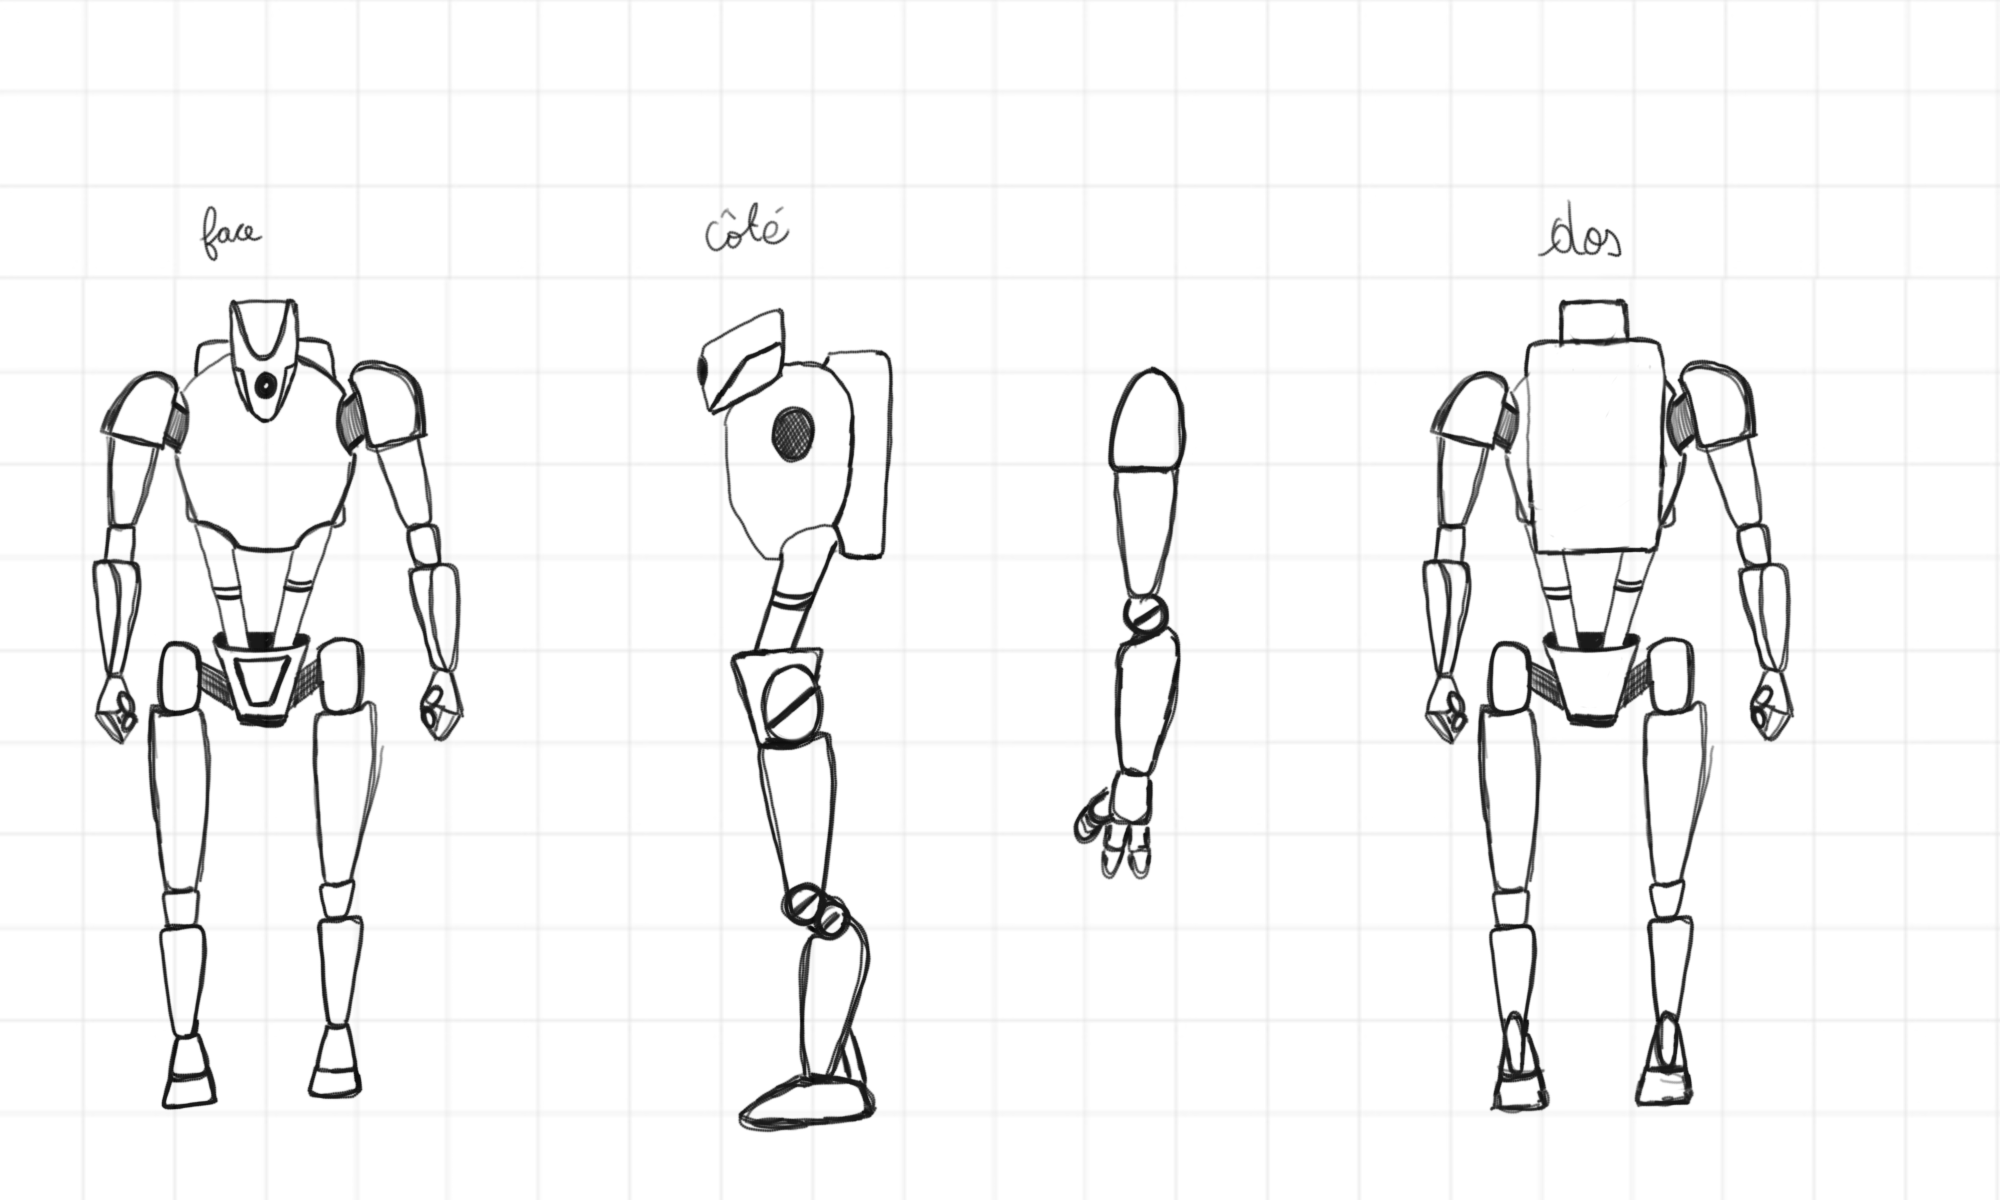 face
côté
dos